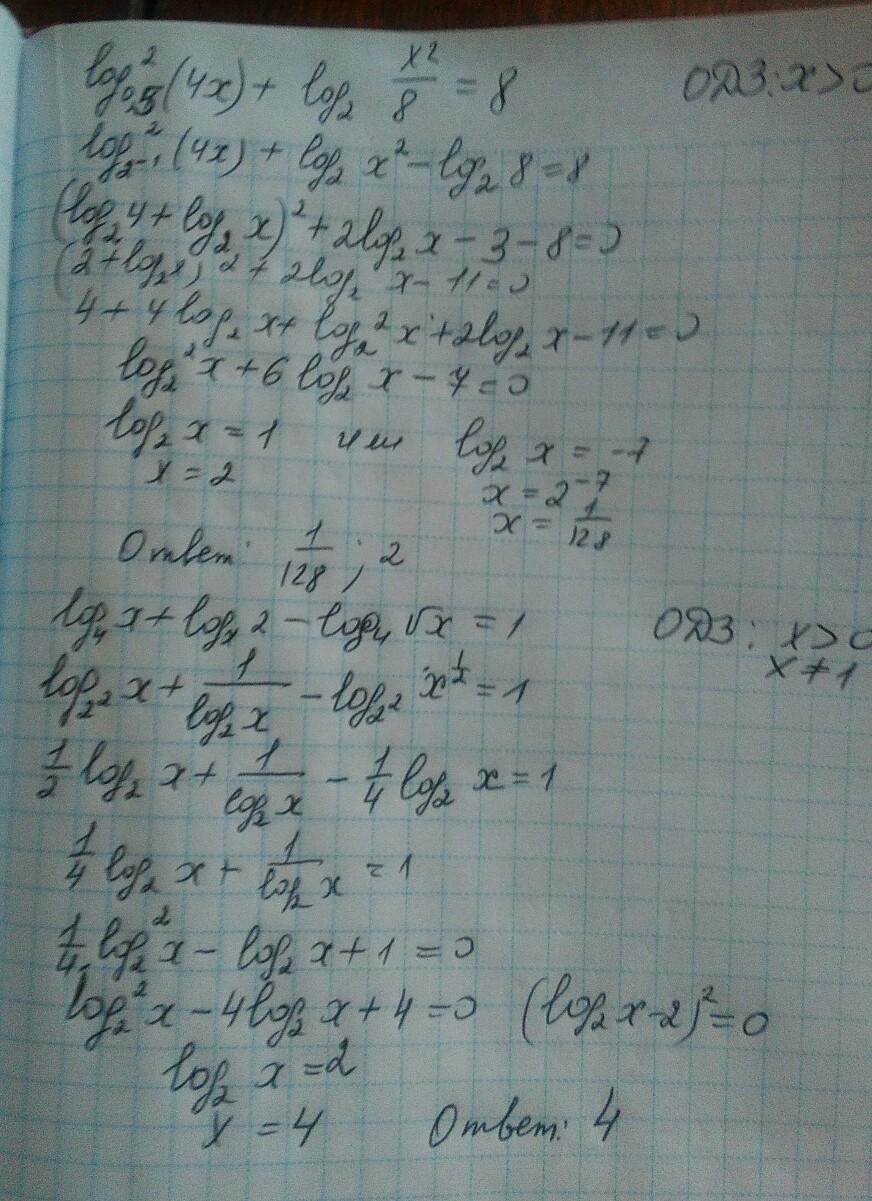 log²₀,₅(4x) + log₂ x²/8 = 8 ОДЗ: x>0
log²₂₋₁(4x) + log₂ x² − log₂ 8 = 8
(log₂4 + log₂x)² + 2log₂x − 3 − 8 = 0
(2 + log₂x)² + 2log₂ x − 11 = 0
4 + 4log₂ x + log₂²x + 2log₂x − 11 = 0
log₂²x + 6 log₂ x − 7 = 0
log₂ x = 1 или log₂ x = −7
x = 2 x = 2⁻⁷
x = 1/128
Ответ: 1/128 ; 2
log₄x + logₓ2 − log₄√x = 1 ОДЗ: x>0
x≠1
log₂²x + 1/log₂x − log₂² x^½ = 1
1/2 log₂ x + 1/log₂x − 1/4 log₂ x = 1
1/4 log₂ x + 1/log₂x = 1
1/4 log₂²x − log₂x + 1 = 0
log₂²x − 4log₂x + 4 = 0 (log₂x−2)² = 0
log₂ x = 2
x = 4 Ответ: 4